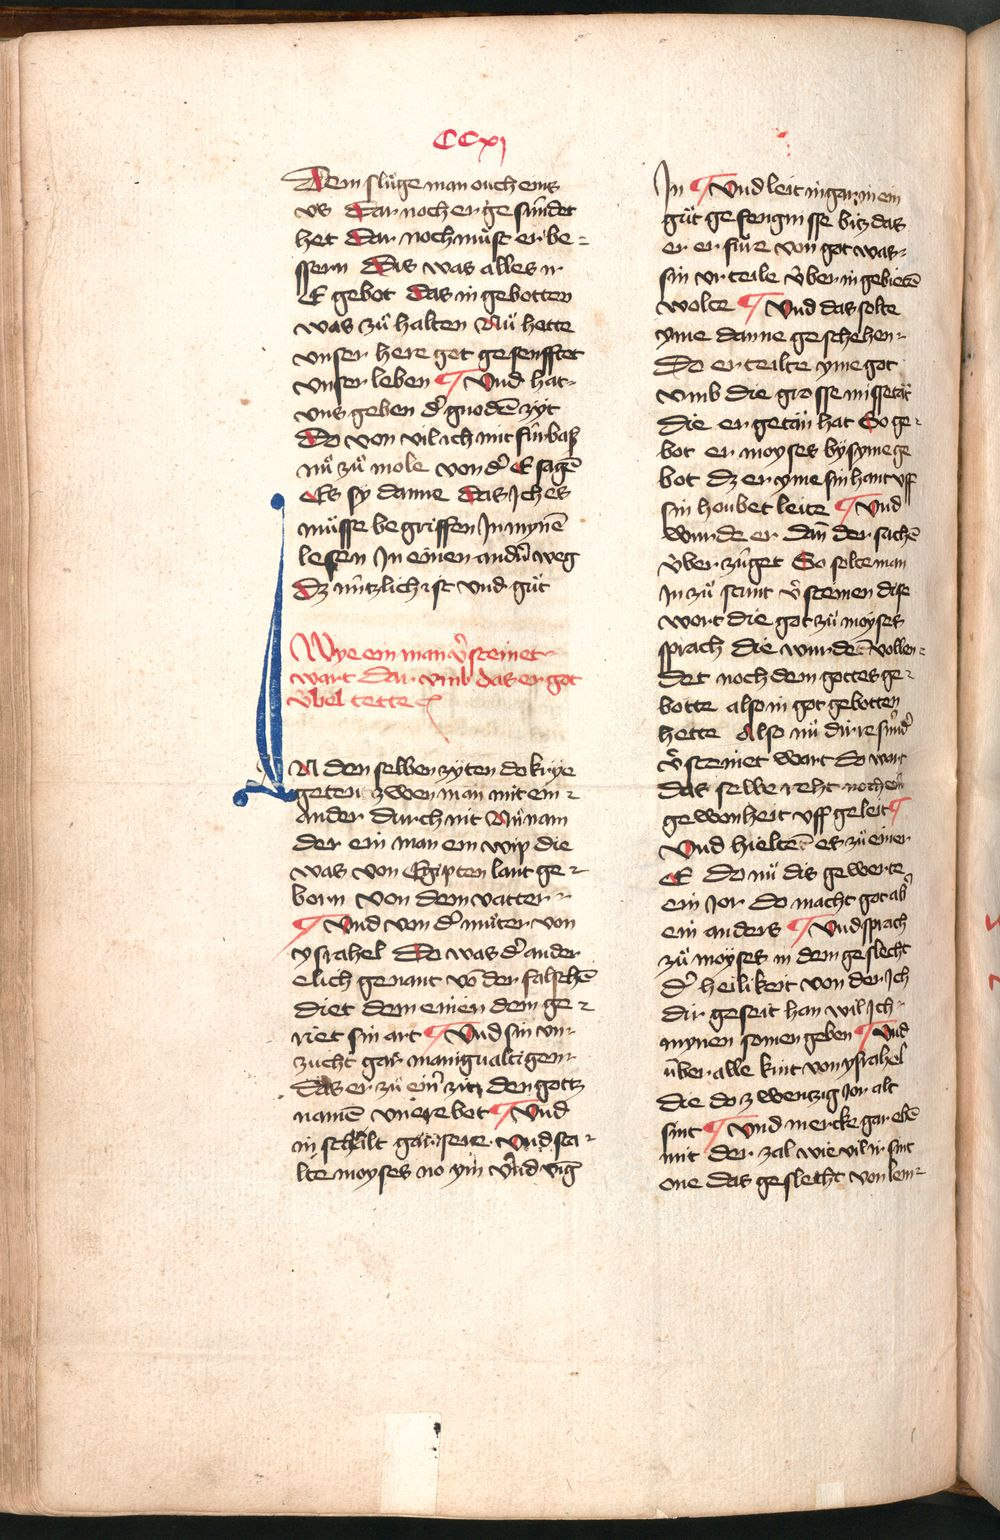 CCxj
Dem slüge man ouch eins
vs Dar noch er gesündet
het Dar noch müst er be-
ssern Dis was alles ir
E gebot Das in gebotten
was zů halten Nů hette
vnser here got gesenfftet
vnser leben ¶ Vnd hat
vns geben d' gnodē zyt
Do von vil ich mit fürbaß
nů zů mole von d' E sagē
Es sy danne Das Jch es
müsse begriffen Jn mynē
lesen Jn einen andn̄ weg
Dz nützlich ist vnd gůt
Wye ein man v'steinet
wart Dar vmb das er got
übel tette
N den selben zyten do krije
geten zwen man mit ein-
ander durch nit Nů nam
der ein man ein wip die
was von Egipten lant ge-
born von dem vatter
¶ Vnd von d' můter von
ysrahel Do was d' ander
elich genant vō der falschē
diet dem einen dem ge-
riet sin art ¶ Vnd sin vn-
zucht gar manigualtigem
Das er zů ein' zit den gottz
namē vnerebot ¶ Vnd
in schalt gar sere Vnd sta-
lte moyses no ym vnd vig
Jn ¶ Vnd leit in gar in ein
gůt gefengnisse bitz das
er erfüre von got was
sin vrteile über in gebietē
wolte ¶ Vnd das solte
yme danne geschehen
Do erteilte yme got
vmb die grosse missetät
die er getän hat So ge-
bot er moyses by syme ge
bot dz er yme sin hant vff
sin houbet leite ¶ Vnd
wurde er dan̄ der sachē
überzüget So solte man
Jn zů stunt v'steinen dise
wort die got zů moyses
sprach die wurdēt vollen-
det noch dem gottes ge-
botte also in got gebotten
hette Also nů dirre sünd'
v'steinet wart do wart
das selbe reht noch ein'
gewonheit vff geleit ¶
Vnd hieltēt es zů einer
E Do nů dis gewerte
ein Jor Do macht got ab'
ein anders ¶ Vnd sprach
zů moyses in dem geslecht
d' heilikeit von der Jch
dir geseit han wil Jch
mynen somen geben ¶ Vnd
über alle kint von ysrahel
die do zwenzig Jor alt
sint ¶ Vnd mercke gar ebē
mit der zal wie vil ir sint
one das geslecht von leui